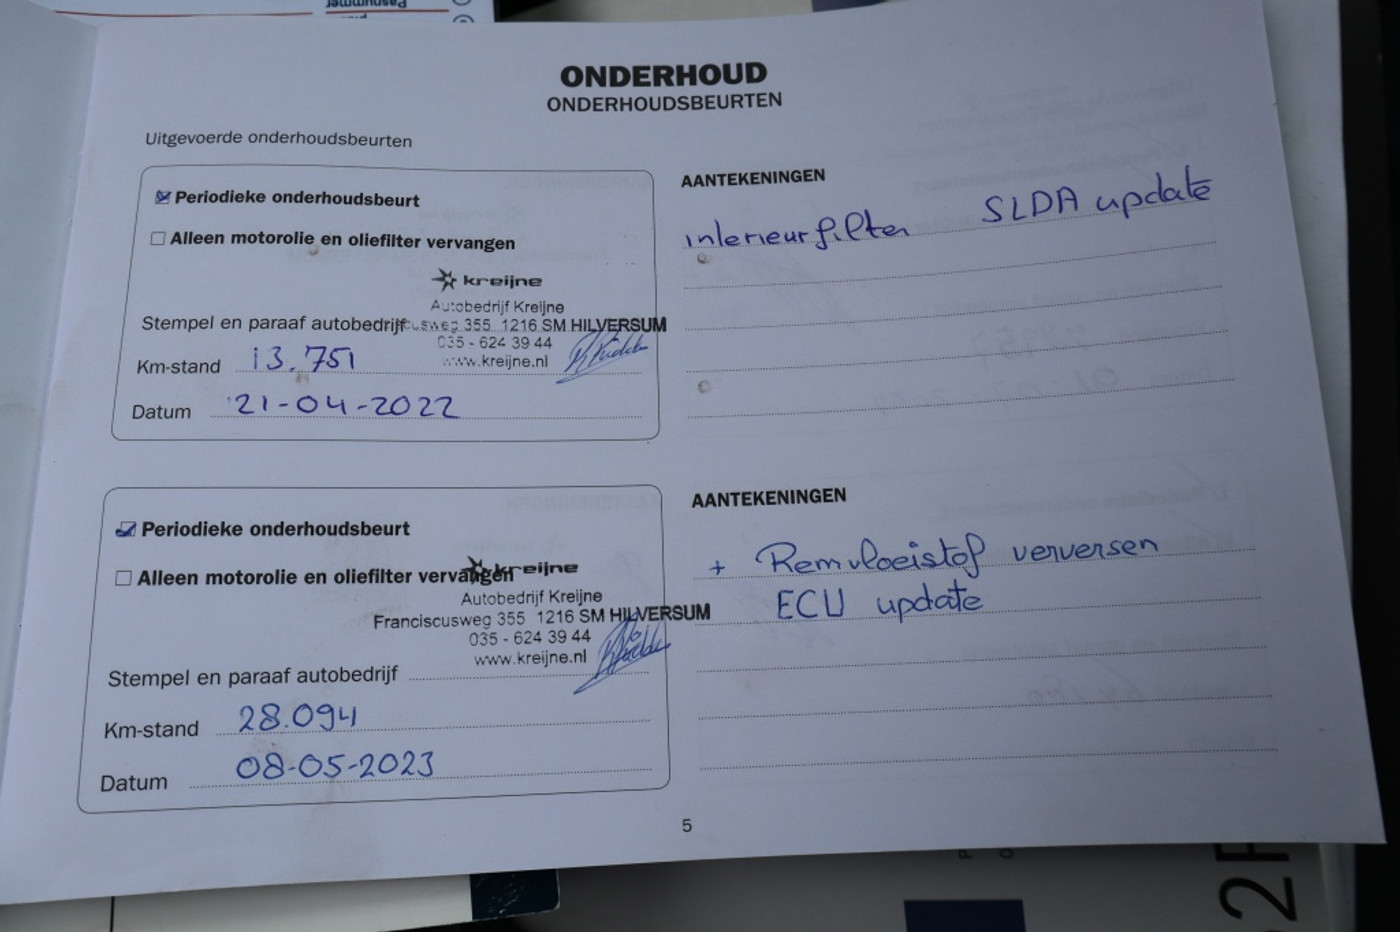 ONDERHOUD
ONDERHOUDSBEURTEN
Uitgevoerde onderhoudsbeurten
Periodieke onderhoudsbeurt
Alleen motorolie en oliefilter vervangen
kreijne
Autobedrijf Kreijne
Stempel en paraaf autobedrijf
355 1216 SM HILVERSUM
035 - 624 39 44
www.kreijne.nl
Km-stand 13.751
Datum 21-04-2022
AANTEKENINGEN
interieurfilter SLDA update
Periodieke onderhoudsbeurt
Alleen motorolie en oliefilter vervangen
kreijne
Autobedrijf Kreijne
Franciscusweg 355 1216 SM HILVERSUM
035 - 624 39 44
www.kreijne.nl
Stempel en paraaf autobedrijf
Km-stand 28.094
Datum 08-05-2023
AANTEKENINGEN
+ Remvloeistof verversen
ECU update
5